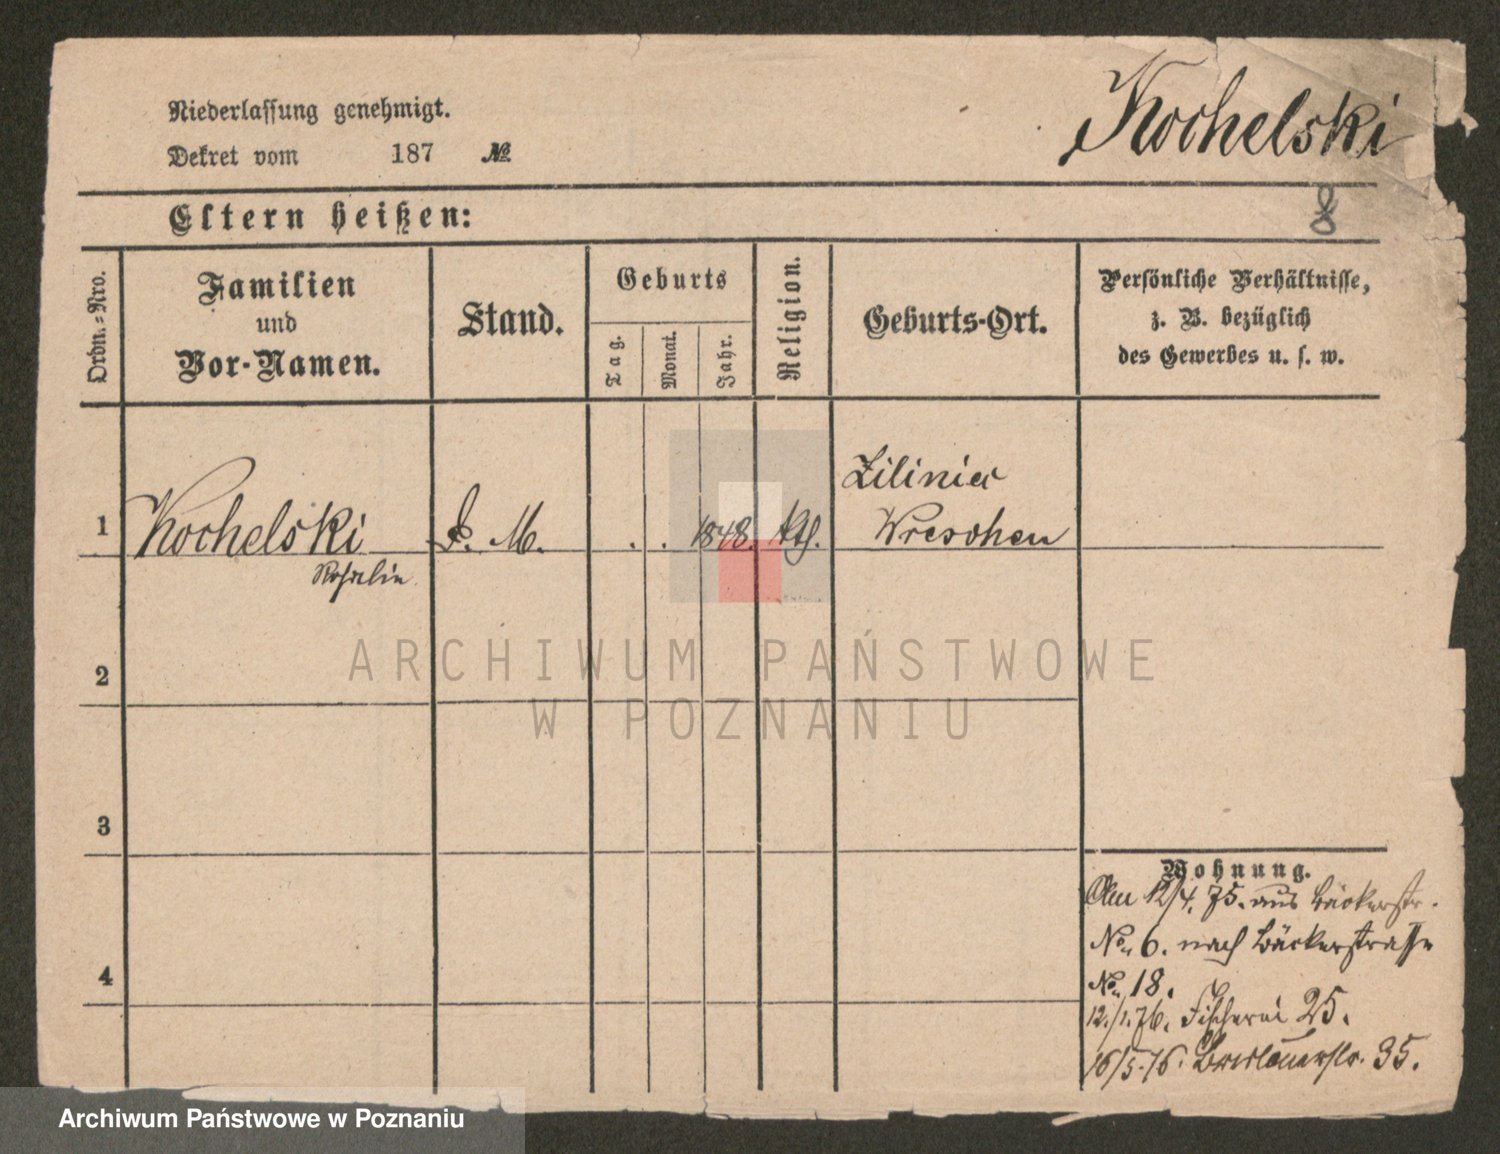 Niederlassung genehmigt.
Kochelski
Dekret vom 187 №
Eltern heißen:
8
Ordn.-Nro.
Familien
und
Vor-Namen.
Stand.
Geburts
Tag.
Monat.
Jahr.
Religion.
Geburts-Ort.
Persönliche Verhältnisse,
z. B. bezüglich
des Gewerbes u. s. w.
1 Kochelski D. M. . . 1848. kth. Zilinier
Wreschen
Rosalie
2
ARCHIWUM PAŃSTWOWE
W POZNANIU
3
4
Wohnung.
Am 12/4. 75. aus Bäckerstr.
No. 6. nach Bäckerstrasse
No. 18.
12./1. 76. Fischerei 25.
16/5.76. Breslauerstr. 35.
Archiwum Państwowe w Poznaniu